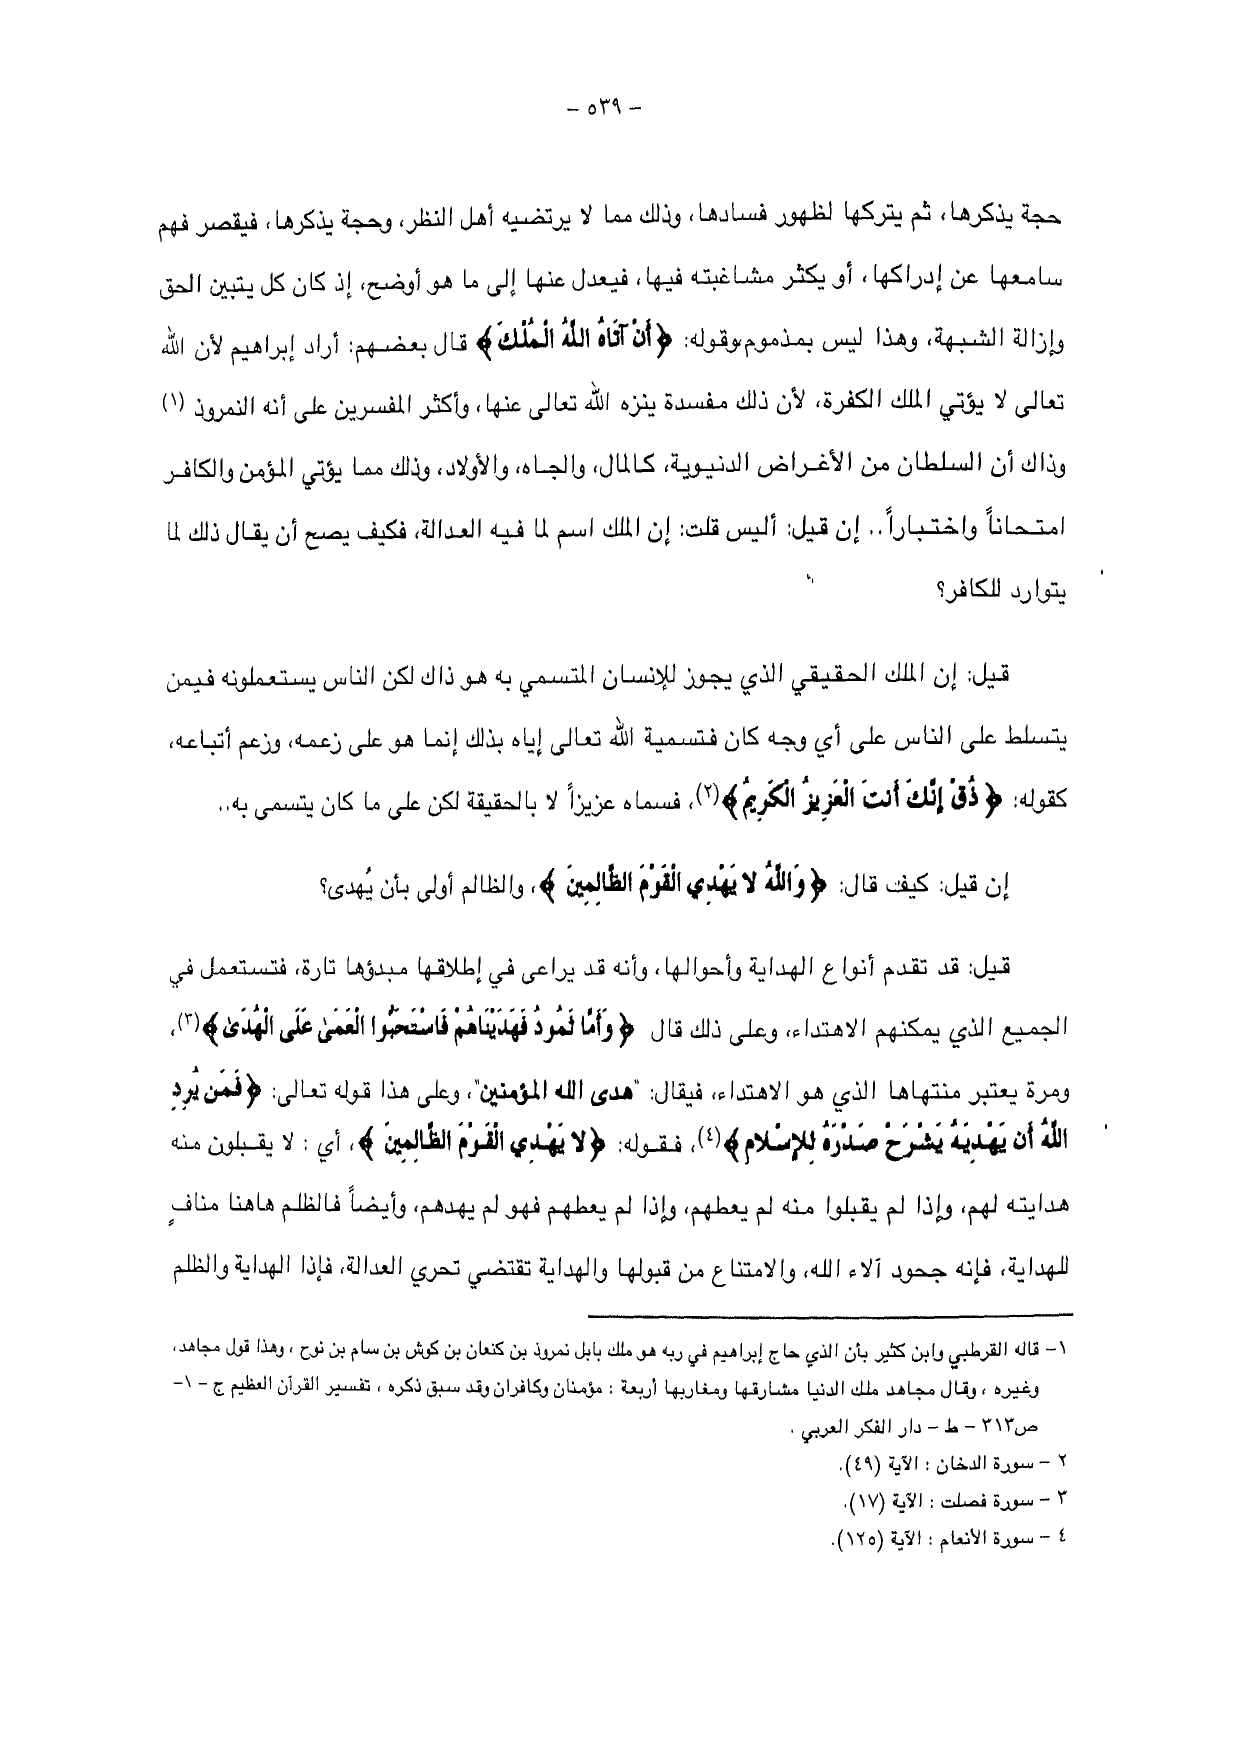 – ٥٣٩ –
حجة يذكرها، ثم يتركها لظهور فسادها، وذلك مما لا يرتضيه أهل النظر، وحجة يذكرها، فيقصر فهم
سامعها عن إدراكها، أو يكثر مشاغبته فيها، فيعدل عنها إلى ما هو أوضح، إذ كان كل يتبين الحق
وإزالة الشبهة، وهذا ليس بمذموم،وقوله: ﴿أَنْ آتَاهُ اللَّهُ الْمُلْكَ﴾ قال بعضهم: أراد إبراهيم لأن الله
تعالى لا يؤتي الملك الكفرة، لأن ذلك مفسدة ينزه الله تعالى عنها، وأكثر المفسرين على أنه النمروذ (١)
وذاك أن السلطان من الأغراض الدنيوية، كالمال، والجاه، والأولاد، وذلك مما يؤتي المؤمن والكافر
امتحاناً واختباراً.. إن قيل: أليس قلت: إن الملك اسم لما فيه العدالة، فكيف يصح أن يقال ذلك لما
يتوارد للكافر؟
قيل: إن الملك الحقيقي الذي يجوز للإنسان التسمي به هو ذاك لكن الناس يستعملونه فيمن
يتسلط على الناس على أي وجه كان فتسمية الله تعالى إياه بذلك إنما هو على زعمه، وزعم أتباعه،
كقوله: ﴿ذُقْ إِنَّكَ أَنتَ الْعَزِيزُ الْكَرِيمُ﴾(٢)، فسماه عزيزاً لا بالحقيقة لكن على ما كان يتسمى به..
إن قيل: كيف قال: ﴿وَاللَّهُ لا يَهْدِي الْقَوْمَ الظَّالِمِينَ﴾، والظالم أولى بأن يُهدى؟
قيل: قد تقدم أنواع الهداية وأحوالها، وأنه قد يراعى في إطلاقها مبدؤها تارة، فتستعمل في
الجميع الذي يمكنهم الاهتداء، وعلى ذلك قال ﴿وَأَمَّا ثَمُودُ فَهَدَيْنَاهُمْ فَاسْتَحَبُّوا الْعَمَىٰ عَلَى الْهُدَىٰ﴾(٣)،
ومرة يعتبر منتهاها الذي هو الاهتداء، فيقال: "هدى الله المؤمنين"، وعلى هذا قوله تعالى: ﴿فَمَن يُرِدِ
اللَّهُ أَن يَهْدِيَهُ يَشْرَحْ صَدْرَهُ لِلإِسْلامِ﴾(٤)، فقوله: ﴿لا يَهْدِي الْقَوْمَ الظَّالِمِينَ﴾، أي : لا يقبلون منه
هدايته لهم، وإذا لم يقبلوا منه لم يعطهم، وإذا لم يعطهم فهو لم يهدهم، وأيضاً فالظلم هاهنا منافٍ
للهداية، فإنه جحود آلاء الله، والامتناع من قبولها والهداية تقتضي تحري العدالة، فإذا الهداية والظلم
١– قاله القرطبي وابن كثير بأن الذي حاج إبراهيم في ربه هو ملك بابل نمروذ بن كنعان بن كوش بن سام بن نوح ، وهذا قول مجاهد،
وغيره ، وقال مجاهد ملك الدنيا مشارقها ومغاربها أربعة : مؤمنان وكافران وقد سبق ذكره ، تفسير القرآن العظيم ج – ١–
ص٣١٣ – ط – دار الفكر العربي .
٢ – سورة الدخان : الآية (٤٩).
٣ – سورة فصلت : الآية (١٧).
٤ – سورة الأنعام : الآية (١٢٥).